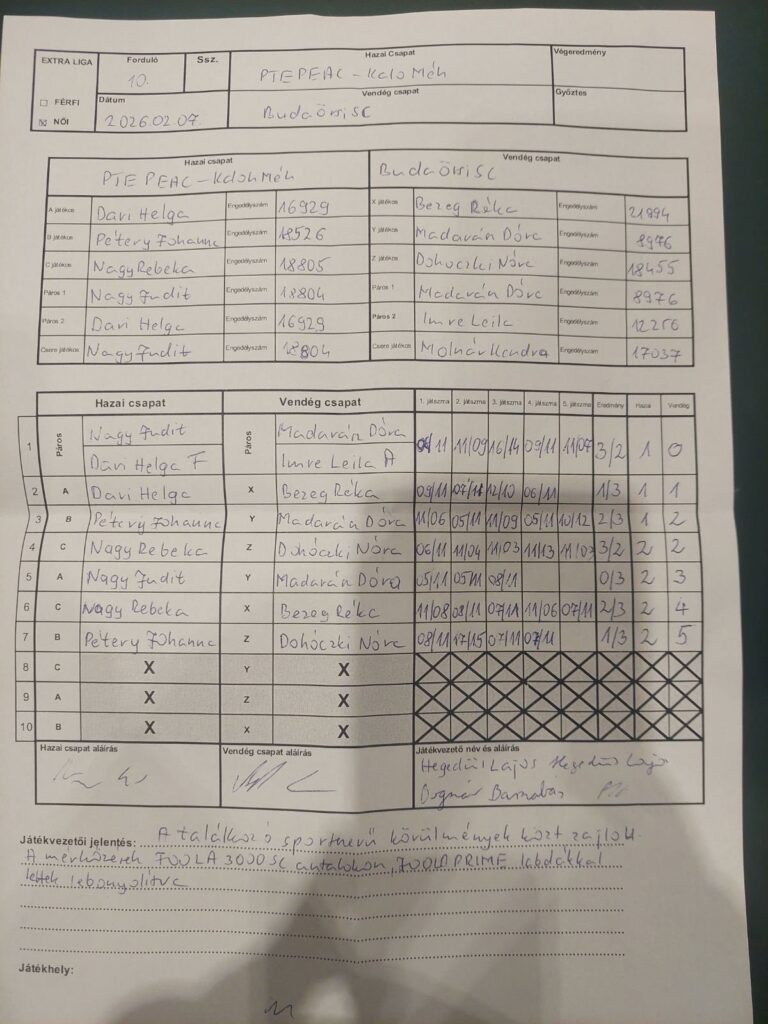 EXTRA LIGA Forduló Ssz. Hazai Csapat Végeredmény
10. PTE PEAC - Kalo Méh
FÉRFI Dátum Vendég csapat Győztes
NŐI 2026.02.07. Budaörsi SC
Hazai csapat Vendég csapat
PTE PEAC - Kaloh Méh Budaörsi SC
A játékos Dari Helga Engedélyszám 16929 X játékos Bezeg Réka Engedélyszám 21894
B játékos Pétery Johanna Engedélyszám 18526 Y játékos Madarán Dóra Engedélyszám 8976
C játékos Nagy Rebeka Engedélyszám 18805 Z játékos Dohóczki Nóra Engedélyszám 18455
Páros 1 Nagy Judit Engedélyszám 18804 Páros 1 Madarán Dóra Engedélyszám 8976
Páros 2 Dari Helga Engedélyszám 16929 Páros 2 Imre Leila Engedélyszám 12256
Csere játékos Nagy Judit Engedélyszám 18804 Csere játékos Molnár Kendra Engedélyszám 17037
Hazai csapat Vendég csapat 1. játszma 2. játszma 3. játszma 4. játszma 5. játszma Eredmény Hazai Vendég
1 Páros Nagy Judit Páros Madarán Dóra 11/09 16/14 09/11 11/07 3/2 1 0
Dari Helga F Imre Leila A
2 A Dari Helga X Bezeg Réka 09/11 07/11 12/10 06/11 1/3 1 1
3 B Pétery Johanna Y Madarán Dóra 11/06 05/11 11/09 05/11 10/12 2/3 1 2
4 C Nagy Rebeka Z Dohóczki Nóra 06/11 11/04 11/03 11/13 11/07 3/2 2 2
5 A Nagy Judit Y Madarán Dóra 05/11 05/11 08/11 0/3 2 3
6 C Nagy Rebeka X Bezeg Réka 11/08 08/11 07/11 11/06 07/11 2/3 2 4
7 B Pétery Johanna Z Dohóczki Nóra 08/11 17/15 07/11 07/11 1/3 2 5
8 C X Y X
9 A X Z X
10 B X X X
Hazai csapat aláírás Vendég csapat aláírás Játékvezető név és aláírás
Hegedűs Lajos Hegedűs Lajos
Bognár Barnabás
Játékvezetői jelentés: A találkozó sportszerű körülmények közt zajlott.
A mérkőzések JOOLA 3000 SC asztalokon, JOOLA PRIME labdákkal
lettek lebonyolítva
Játékhely: